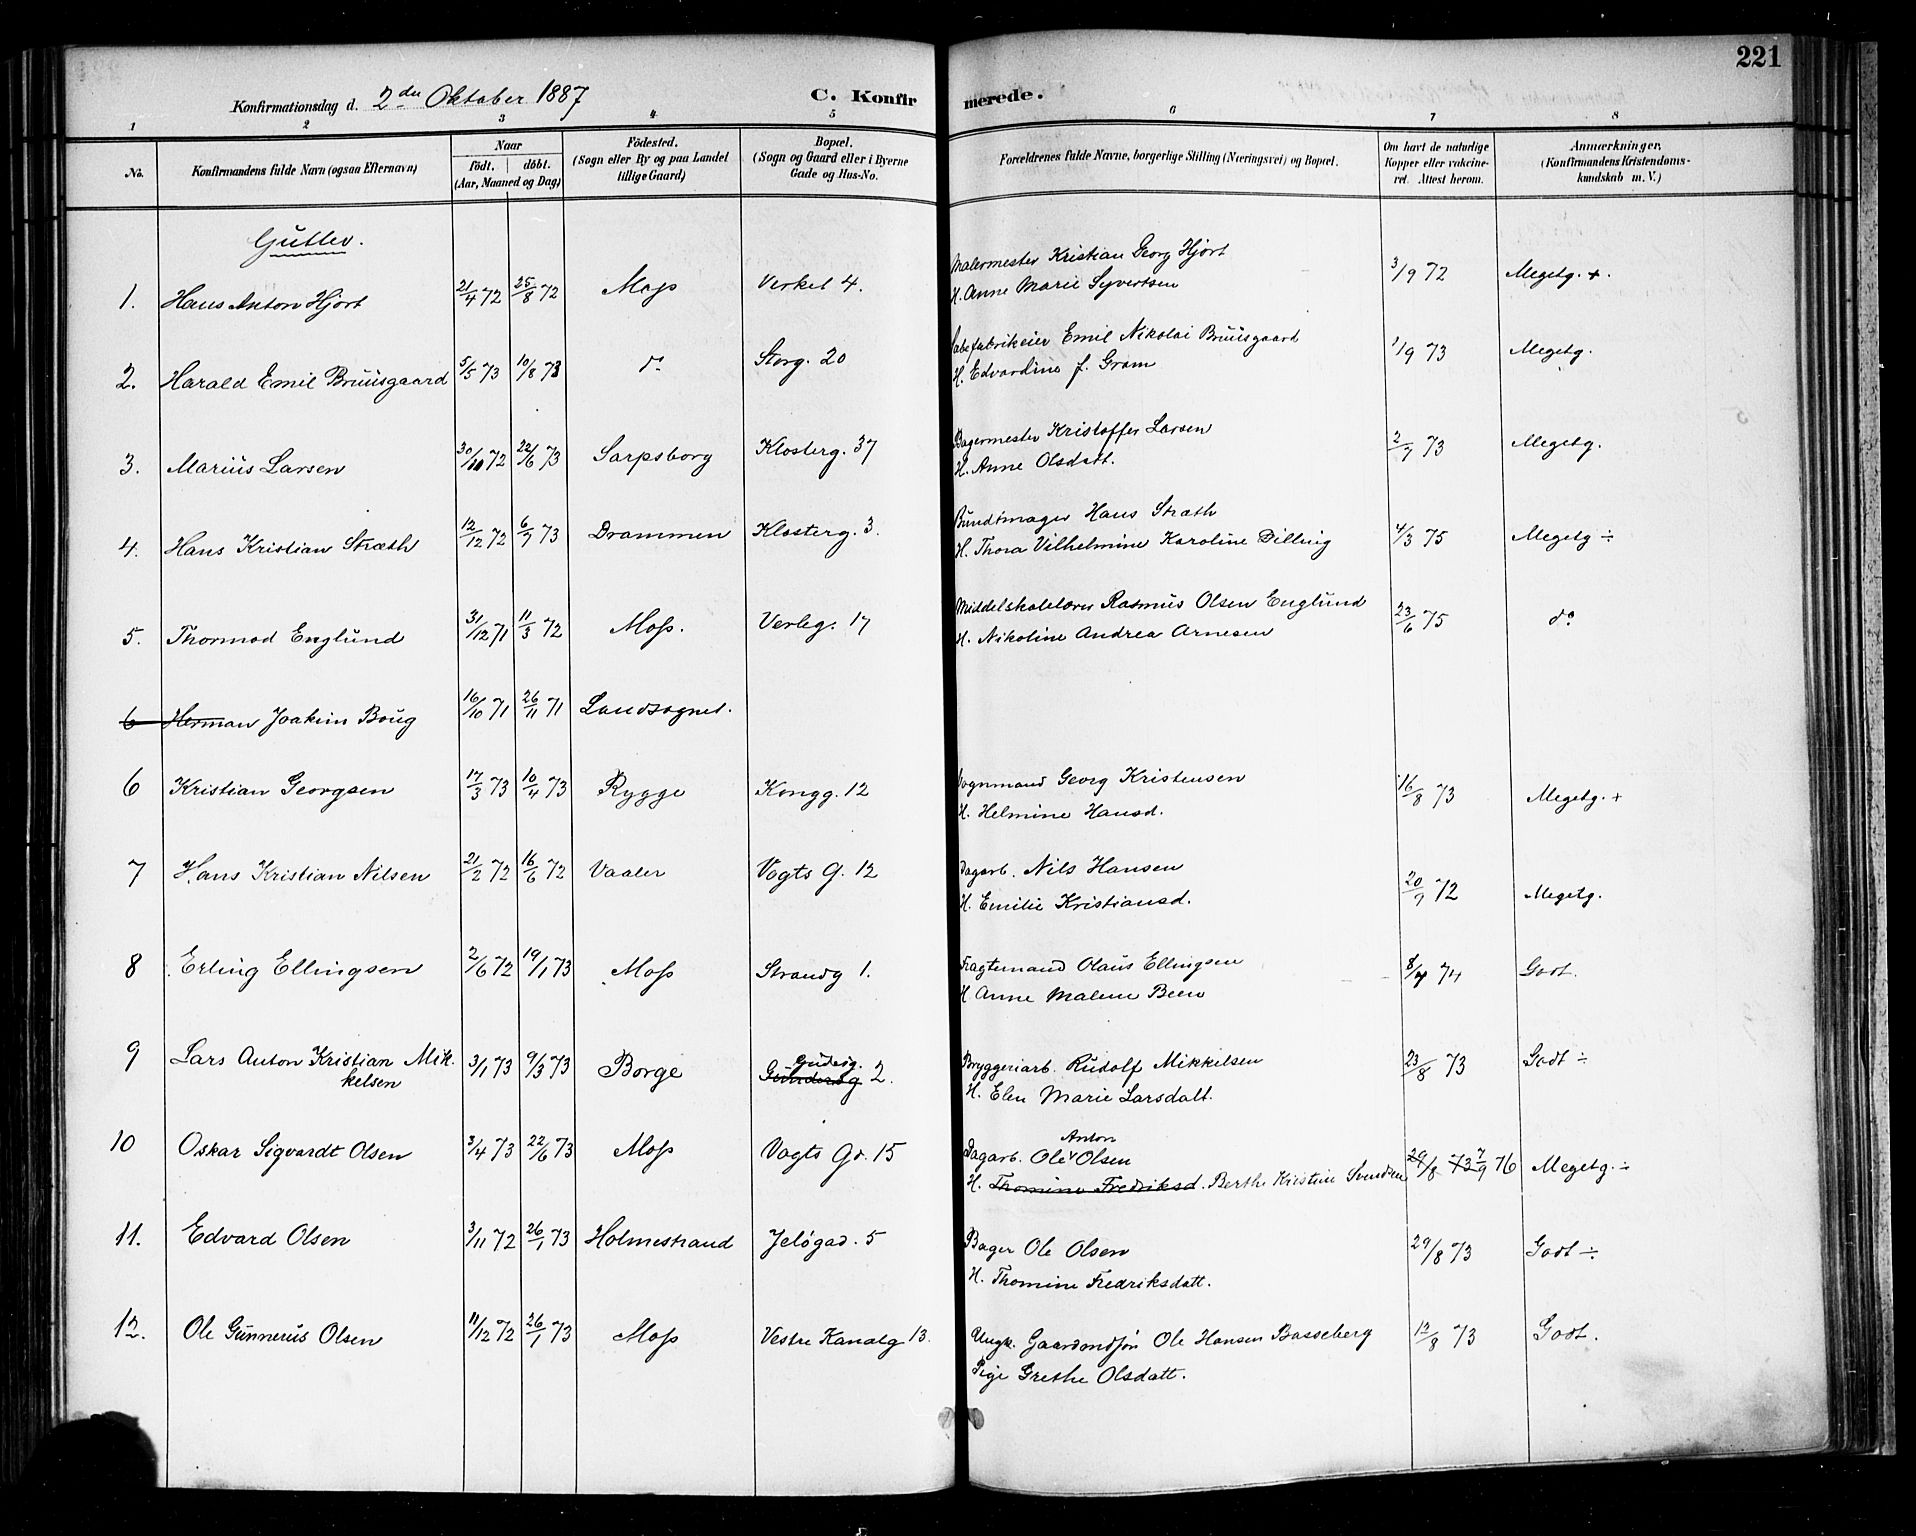 221
Konfirmationsdag d. 2den Oktober 1887 C. Konfirmerede.
1 2 3 4 5 6 7 8
No. Konfirmandens fulde Navn (ogsaa Efternavn) Naar født. døbt. (Aar, Maaned og Dag) Fødested. (Sogn eller By og paa Landet tillige Gaard) Bopæl. (Sogn og Gaard eller i Byerne Gade og Hus-No. Forældrenes fulde Navne, borgerlige Stilling (Næringsvei) og Bopæl. Om havt de naturlige Kopper eller vakcineret. Attest herom. Anmærkninger. (Konfirmandens Kristendomskundskab m. V.)
Gutter.
1. Hans Anton Hjort 21/4 72 25/8 72 Moss Verket 4. Malermester Kristian Georg Hjort 3/9 72 Megetg. +.
H. Anne Marie Syvertsen
2. Harald Emil Bruusgaard 5/5 73 10/8 73 do Storg. 20 Sæbefabrikeier Emil Nikolai Bruusgaard 1/9 73 Megetg.
H. Edvardine f. Gram
3. Marius Larsen 30/10 72 22/6 73 Sarpsborg Klosterg. 37 Bagermester Kristoffer Larsen 2/7 73 Megetg.
H. Anne Olsdatt.
4. Hans Kristian Stræth 12/12 72 6/7 73 Drammen Klosterg. 3. Bundtmager Hans Stræth 4/3 75 Megetg ÷
H. Thora Vilhelmine Karoline Dilling
5. Thormod Englund 31/12 71 11/3 72 Moss. Verleg. 17 Middelskolelærer Rasmus Olsen Englund 23/6 75 do
H. Nikoline Andrea Arnesen
6 Herman Joakim Boug 16/10 71 26/11 71 Landsognet.
6 Kristian Georgsen 17/3 73 10/4 73 Rygge Kongg. 12 Vognmand Georg Kristensen 16/8 73 Megetg. +
H. Helmine Hansd.
7 Hans Kristian Nilsen 21/2 72 16/6 72 Vaaler Vogts G. 12 Dagarb. Nils Hansen 20/7 72 Megetg.
H. Emilie Kristiansd.
8 Erling Ellingsen 2/6 72 19/1 73 Moss Strandg 1. Fragtemand Olaus Ellingsen 8/7 74 Godt.
H. Anne Malene Been
9 Lars Anton Kristian Mikkelsen 3/1 73 9/3 73 Borge Gudesg. 2. Bryggeriarb. Rudolf Mikkelsen 23/8 73 Godt ÷
H. Elen Marie Larsdatt.
10 Oskar Sigvardt Olsen 3/4 73 22/6 73 Moss Vogts Gd. 15 Dagarb. Ole Anton Olsen 29/8 73 7/9 76 Megetg. ÷
H. Thomine Fredriksd. Berthe Kristine Svendsen
11. Edvard Olsen 3/11 72 26/1 73 Holmestrand Jeløgad. 5 Bager Ole Olsen 29/8 73 Godt ÷
H. Thomine Fredriksdatt.
12. Ole Gunnerus Olsen 11/12 72 26/1 73 Moss Vestre Kanalg 13. Ungk. Gaardmdsøn Ole Hansen Basseberg 13/8 73 Godt.
Pige Grethe Olsdatt.